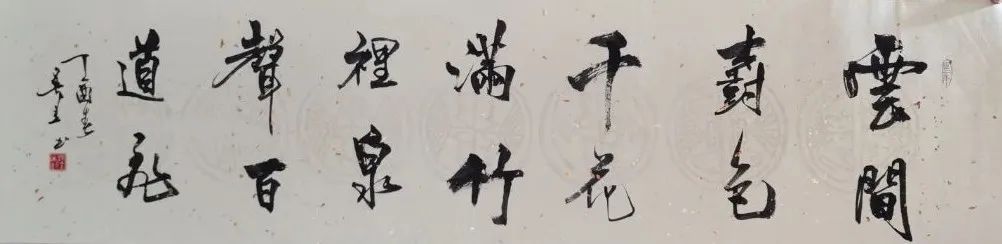 雲間
樹色
千花
滿竹
裡泉
聲百
道飛
丁酉春